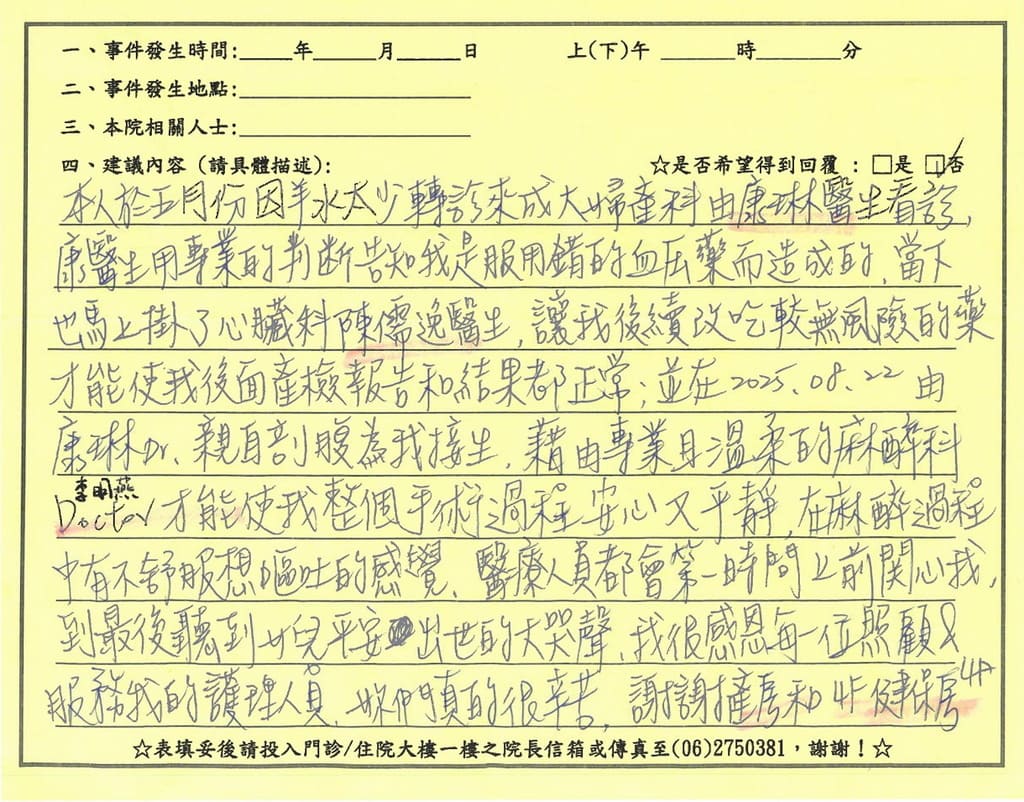 一、事件發生時間:_____年______月______日 上(下)午 ______時_______分
二、事件發生地點:____________________
三、本院相關人士:____________________
四、建議內容 (請具體描述): ☆是否希望得到回覆 : □是 □否
本人於五月份因羊水太少轉診來成大婦產科由康琳醫生看診,
康醫生用專業的判斷告知我是服用錯的血压藥而造成的,當下
也馬上掛了心臟科陳儒逸醫生,讓我後續改吃較無風險的藥
才能使我後面產檢報告和結果都正常;並在2025.08.22由
康琳Dr.親自剖腹為我接生,藉由專業且溫柔的麻醉科
李明燕
Doctor才能使我整個手術過程安心又平靜,在麻醉過程
中有不舒服想嘔吐的感覺,醫療人員都會第一時間上前關心我,
到最後聽到女兒平安出世的大哭聲,我很感恩每一位照顧&
服務我的護理人員,妳們真的很辛苦,謝謝產房和4F健保房4A
☆表填妥後請投入門診/住院大樓一樓之院長信箱或傳真至(06)2750381,謝謝!☆